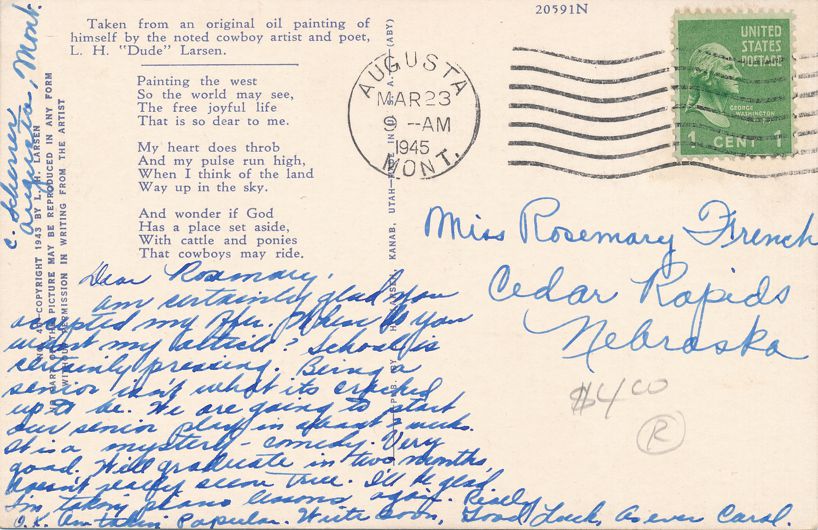 Taken from an original oil painting of
himself by the noted cowboy artist and poet,
L. H. "Dude" Larsen.
Painting the west
So the world may see,
The free joyful life
That is so dear to me.
My heart does throb
And my pulse run high,
When I think of the land
Way up in the sky.
And wonder if God
Has a place set aside,
With cattle and ponies
That cowboys may ride.
C. Scherrer
Augusta, Mont.
COPYRIGHT 1943 BY L. H. LARSEN
NO PART OF THIS PICTURE MAY BE REPRODUCED IN ANY FORM
WITHOUT PERMISSION IN WRITING FROM THE ARTIST
LARSEN, KANAB, UTAH
20591N
AUGUSTA
MAR 23
9 -AM
1945
MONT.
UNITED
STATES
POSTAGE
GEORGE
WASHINGTON
1 CENT 1
Miss Rosemary French
Cedar Rapids
Nebraska
$4.00
R
Dear Rosemary,
am certainly glad you
accepted my offer. do you
want my article? School is
certainly pressing. Being a
senior isn't what its cracked
up to be. We are going to start
our senior play in about weeks.
It is a mystery-comedy. Very
good. Will graduate in two months,
doesn't really seem true. I'll be glad
I'm taking piano lessons again. Really
O.K. Am takin Popular. Write soon, Good Luck, As ever Carol.